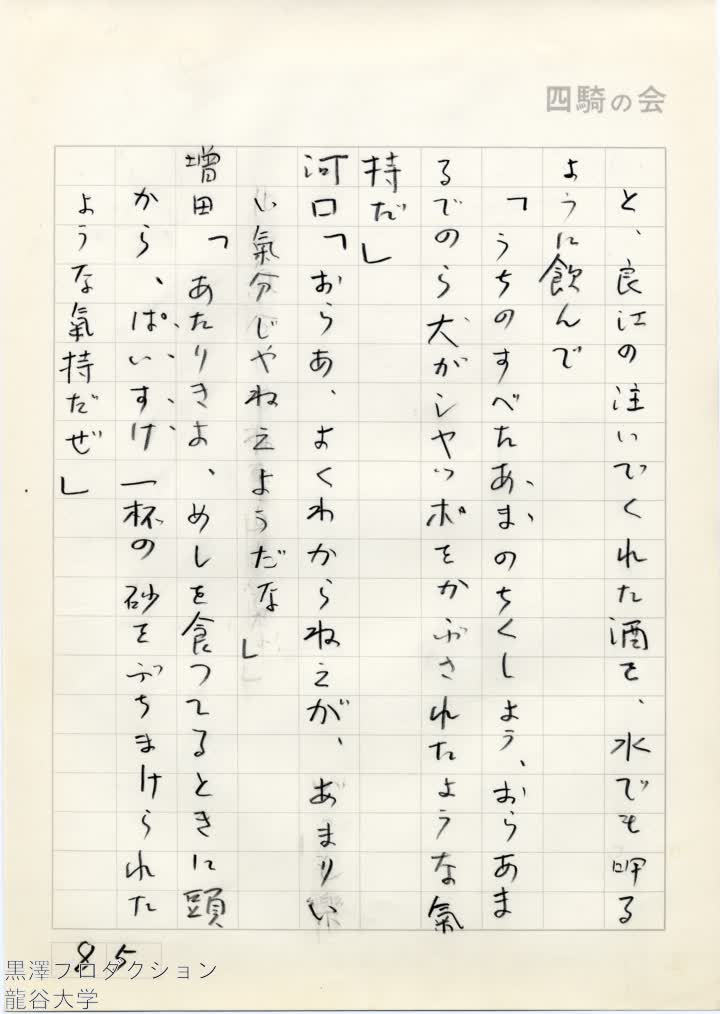 四騎の会
と、良江の注いでくれた酒を、水でも呷る
ように飲んで
「うちのすべたあまのちくしょう、おらあま
るでのら犬がシャッポをかぶされたような氣
持だ」
河口「おらあ、よくわからねえが、あまりい
い氣分じゃねえようだな」
増田「あたりきよ、めしを食ってるときに頭
から、ぱいすけ一杯の砂をぶちまけられた
ような氣持だぜ」
85
黒澤プロダクション
龍谷大学